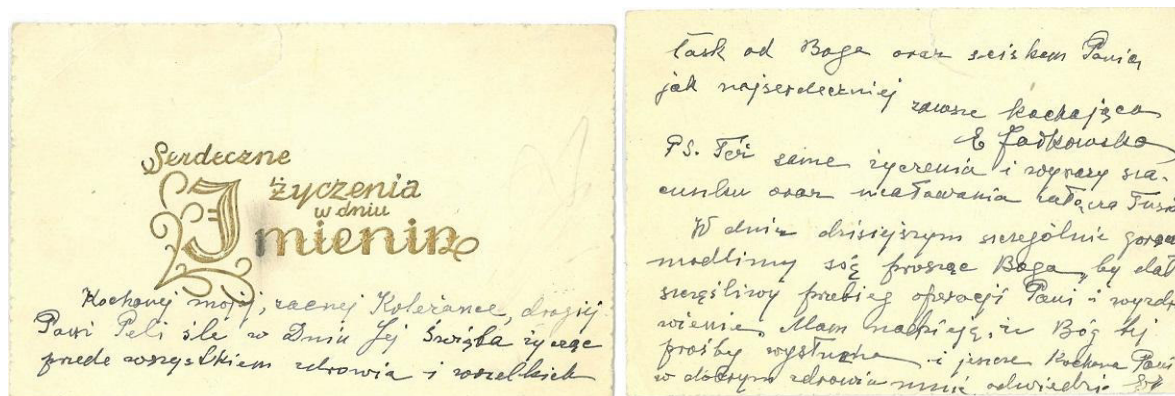 Serdeczne
życzenia
w dniu
Imienin
Kochanej mojej, zacnej Koleżance, drogiej
Pani Peli śle w Dniu Jej Święta życząc
przede wszystkiem zdrowia i wszelkich
łask od Boga oraz ściskam Panią
jak najserdeczniej
zawsze kochająca
E
PS. Też same życzenia i wyrazy sza-
cunku oraz ucałowania załącza
W dniu dzisiejszym szczególnie
modlimy się prosząc Boga, by dał
szczęśliwy przebieg operacji Pani i wyzdro
wienie. Mam nadzieję, że Bóg tej
prośby wysłucha i jeszcze Kochana Pani
w dobrym zdrowiu mnie odwiedzi